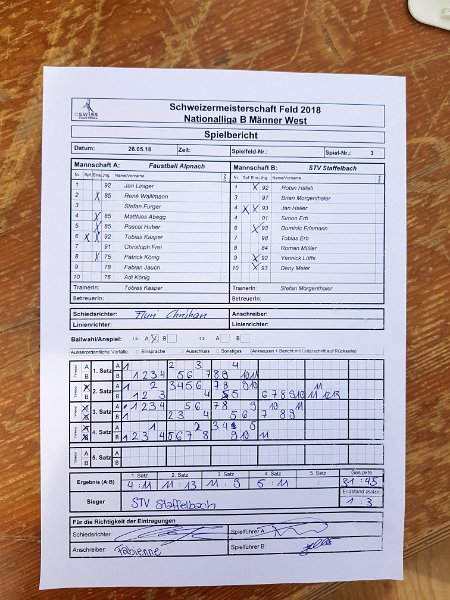 SWISS FAUSTBALL
Schweizermeisterschaft Feld 2018
Nationalliga B Männer West
Spielbericht
Datum: 26.05.18 Zeit: Spielfeld-Nr.: Spiel-Nr.: 3
Mannschaft A: Faustball Alpnach Mannschaft B: STV Staffelbach
Nr. Spf. Einw. Jhg. Name/Vorname Nr. Spf. Einw. Jhg. Name/Vorname
1 92 Jan Liniger 1 X 92 Robin Häfeli
2 X 85 René Wallimann 3 97 Brian Morgenthaler
3 Stefan Furger 4 X X 93 Jan Haller
4 X 85 Matthias Abegg 4 01 Simon Erb
5 X 85 Pascal Huber 6 X 93 Dominic Erismann
6 X X 92 Tobias Kasper 7 98 Tobias Erb
7 91 Christoph Frei 8 84 Roman Müller
8 X 75 Patrick König 9 X 92 Yannick Lüthi
9 78 Fabian Jauch 10 X 93 Dany Meier
10 76 Adi König
TrainerIn: Tobias Kasper TrainerIn: Stefan Morgenthaler
BetreuerIn: BetreuerIn:
Schiedsrichter: Anschreiber:
Linienrichter: Linienrichter:
Ballwahl/Anspiel: A X B A B
Ausserordentliche Vorfälle: Einsprache Ausschluss Sonstiges (Ankreuzen + Bericht mit Unterschrift auf Rückseite)
A 1. Satz A 1 2 3 4
B B 1 2 3 4 5 6 7 8 9 10 11
A 2. Satz A 1 2 3 4 5 6 7 8 9 10 11
B B 1 2 3 4 5 6 7 8 9 10 11 12 13
3. Satz A 1 2 3 4 5 6 7 8 9 10 11
B 2 3 4 5 6 7 8 9
4. Satz A 1 2 3 4 5
B 1 2 3 4 5 6 7 8 9 10 11
A 5. Satz A
B B
1. Satz 2. Satz 3. Satz 4. Satz 5. Satz Ges.pkte
Ergebnis (A:B) 4:11 11:13 11:9 5:11 31:43
Sieger STV Staffelbach Endstand (Sätze)
1:3
Für die Richtigkeit der Eintragungen
Schiedsrichter: Spielführer A:
Anschreiber: Fabienne Spielführer B: